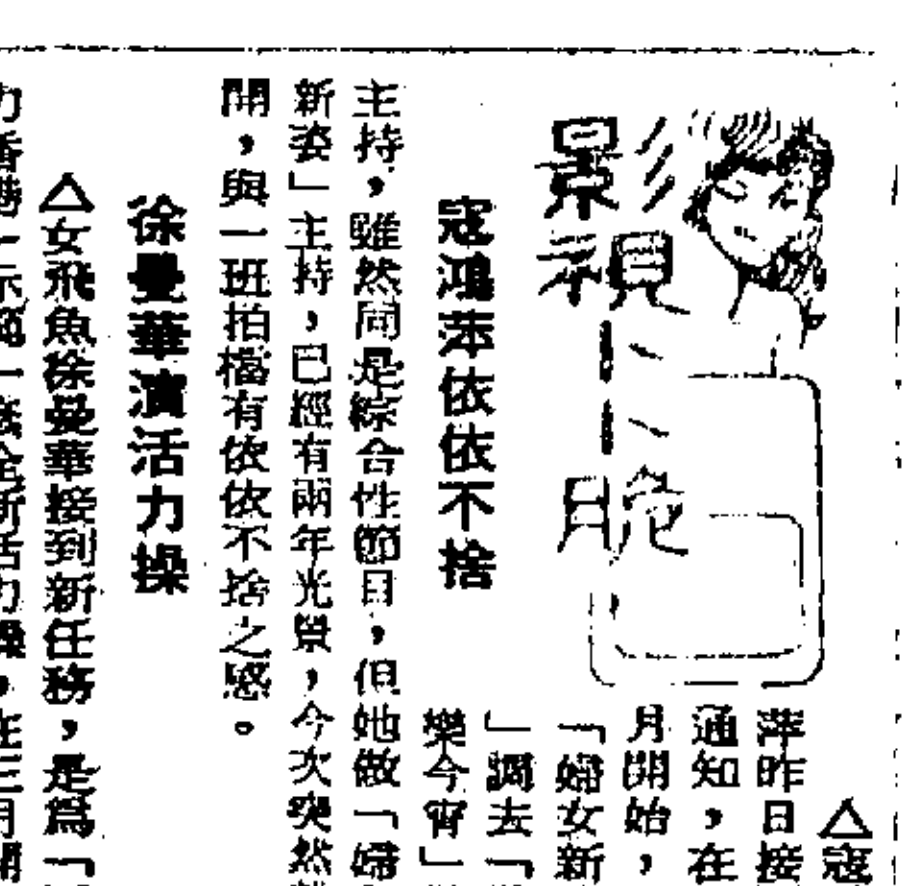 影視一月脆
寇鴻萍依依不捨
△寇
萍昨日接
通知，在
月開始，
「婦女新
」調去「
樂今宵」
主持，雖然同是綜合性節目，但她做「婦
新姿」主持，已經有兩年光景，今次突然
開，與一班拍檔有依依不捨之感。
徐曼華演活力操
△女飛魚徐曼華接到新任務，是爲「
力香港」示範一套全新活力操，在三月開